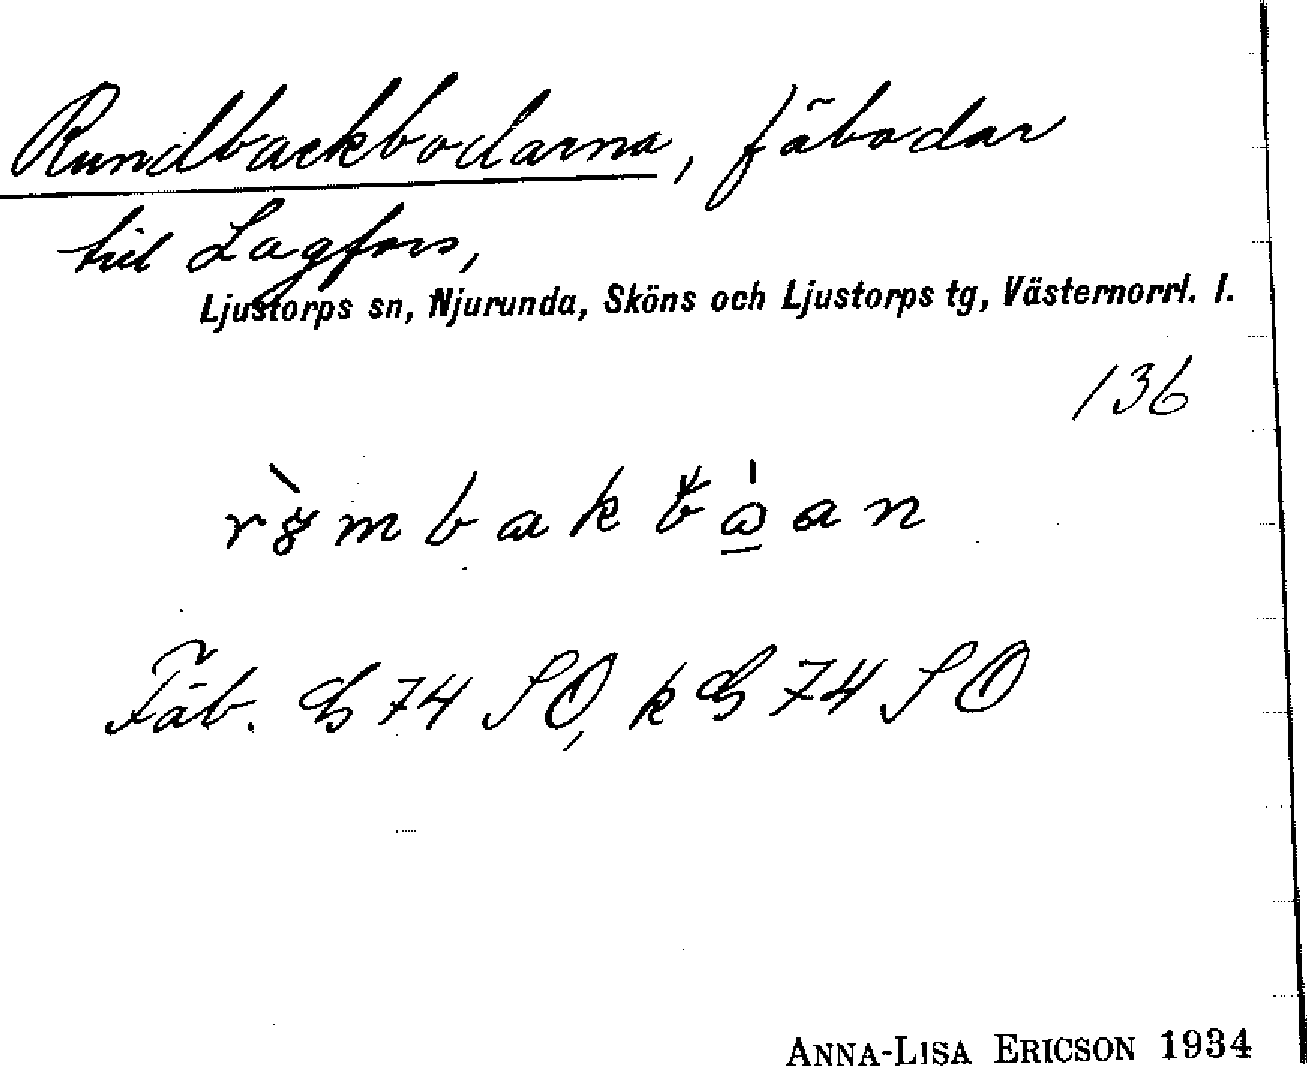 Rundbackbodarna, fäbodar
till Lagfors,
Ljustorps sn, Njurunda, Sköns och Ljustorps tg, Västernorrl. l.
136
Fäb. G 74 SO, k G 74 SO
ANNA-LISA ERICSON 1934